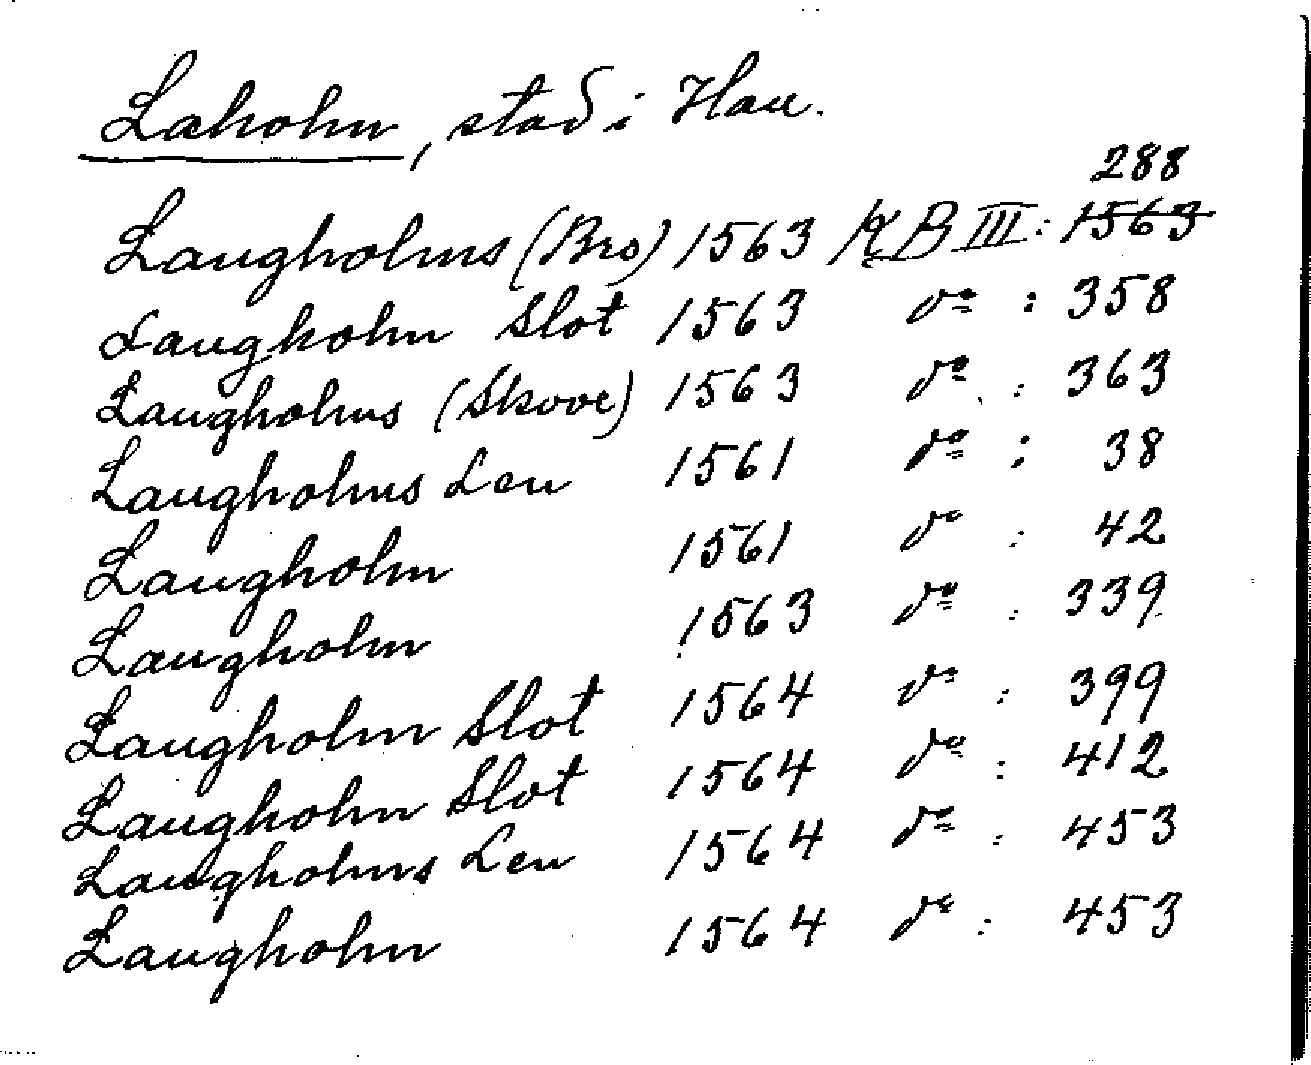 Laholm, stad i Hall.
288
Laugholms (Bro) 1563 KB III: 1563
Laugholm Slot 1563 do : 358
Laugholms (Skove) 1563 do : 363
Laugholms Len 1561 do : 38
Laugholm 1561 do : 42
Laugholm 1563 do : 339
Laugholm Slot 1564 do : 399
Laugholm Slot 1564 do : 412
Laugholms Len 1564 do : 453
Laugholm 1564 do : 453